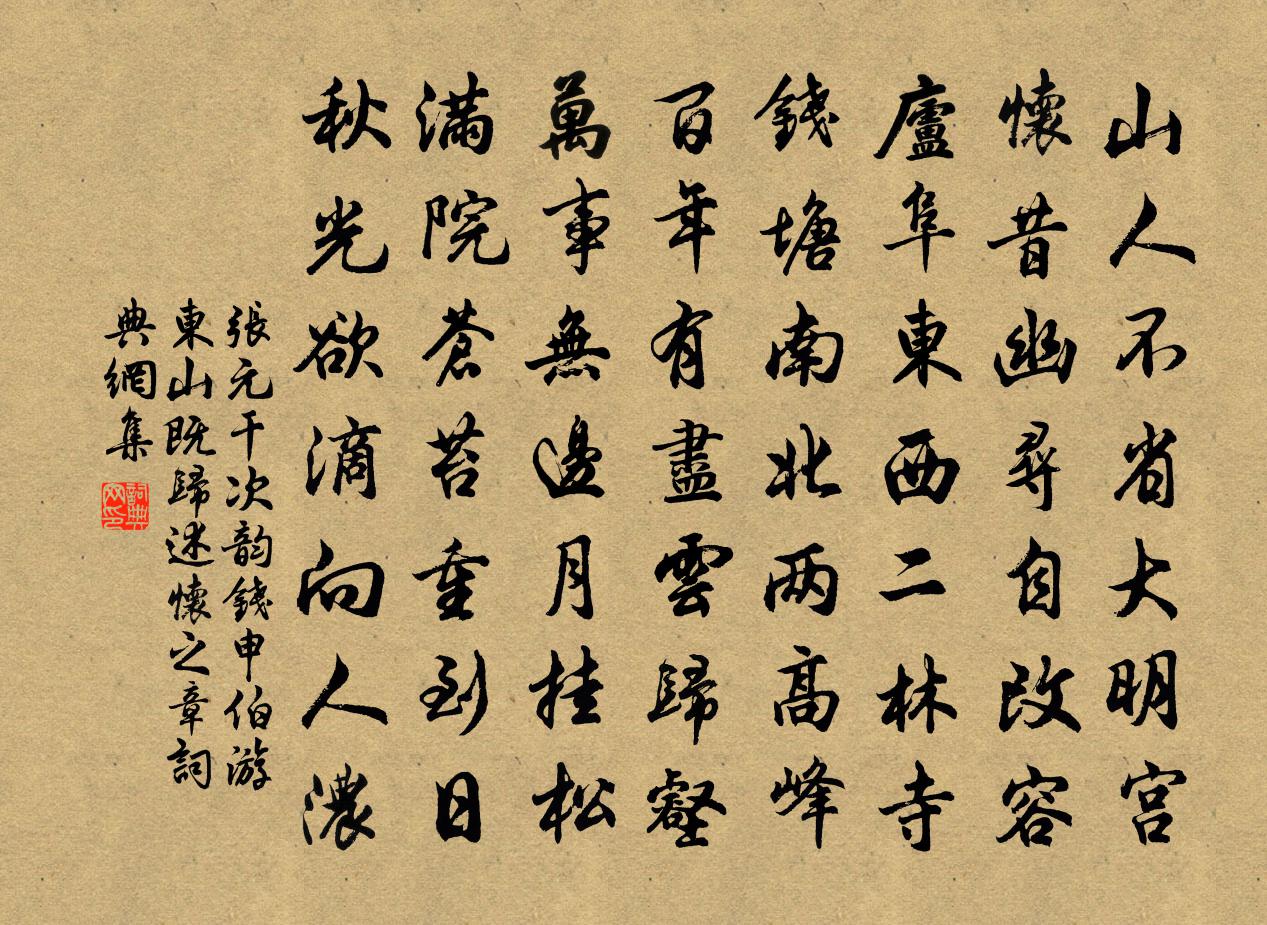 山人不省大明宫
懷昔幽尋自改容
廬阜東西二林寺
錢塘南北两高峰
百年有盡雲歸壑
萬事無邊月挂松
滿院蒼苔重到日
秋光欲滴向人濃
張元干次韵錢申伯游
東山既歸述懷之章詞
典網集
詞典
网印